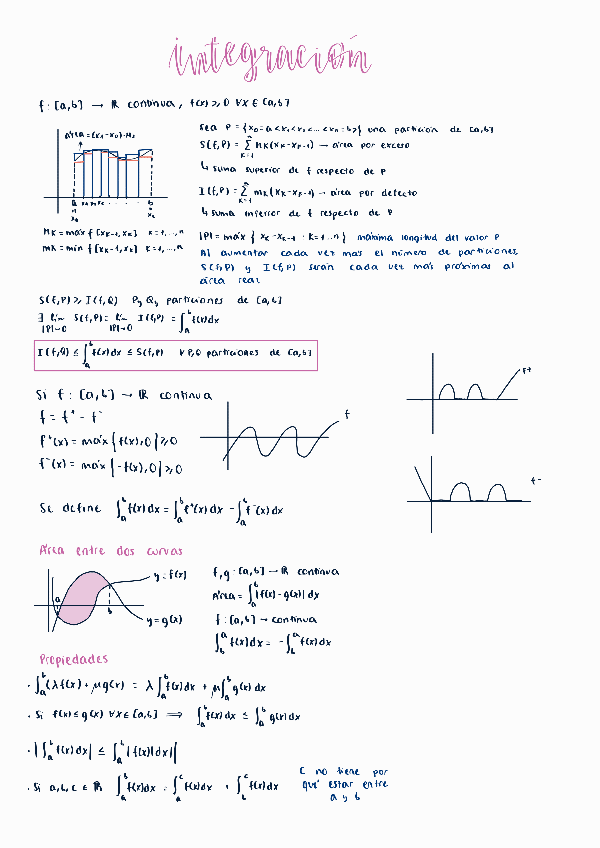 integración
f: [a,b] → ℝ continua, f(x) ≥ 0 ∀x ∈ [a,b]
Área = (x₁-x₀)·M₁
Sea P = {x₀=a < x₁ < x₂ < ... < xₙ = b} una partición de [a,b]
S(f,P) = ∑ₖ₌₁ⁿ Mₖ(xₖ-xₖ₋₁) → área por exceso
↳ suma superior de f respecto de P
I(f,P) = ∑ₖ₌₁ⁿ mₖ(xₖ-xₖ₋₁) → área por defecto
↳ suma inferior de f respecto de P
Mₖ = máx f [xₖ₋₁, xₖ] k=1,...,n
mₖ = mín f [xₖ₋₁, xₖ] k=1,...,n
|P| = máx { xₖ-xₖ₋₁ : k=1...n } máxima longitud del valor P
Al aumentar cada vez más el número de particiones
S(f,P) y I(f,P) serán cada vez más próximas al
área real
S(f,P) ≥ I(f,Q) P y Q particiones de [a,b]
∃ lím |P|→0 S(f,P) = lím |P|→0 I(f,P) = ∫ₐᵇ f(x)dx
I(f,Q) ≤ ∫ₐᵇ f(x)dx ≤ S(f,P) ∀ P,Q particiones de [a,b]
Si f: [a,b] → ℝ continua
f = f⁺ - f⁻
f⁺(x) = máx {f(x),0} ≥ 0
f⁻(x) = máx {-f(x),0} ≥ 0
f
f+
f-
Se define ∫ₐᵇ f(x)dx = ∫ₐᵇ f⁺(x)dx - ∫ₐᵇ f⁻(x)dx
Área entre dos curvas
y=f(x)
a
b
y=g(x)
f,g: [a,b] → ℝ continua
Área = ∫ₐᵇ |f(x) - g(x)| dx
f: [a,b] → continua
∫_b^a f(x)dx = -∫_b^a f(x)dx
Propiedades
· ∫ₐᵇ (λf(x) + μg(x) = λ∫ₐᵇ f(x)dx + μ∫ₐᵇ g(x)dx
· Si f(x) ≤ g(x) ∀x ∈ [a,b] ⟹ ∫ₐᵇ f(x)dx ≤ ∫ₐᵇ g(x)dx
· |∫ₐᵇ f(x)dx| ≤ ∫ₐᵇ |f(x)dx||
· Si a,b,c ∈ ℝ ∫_a^b f(x)dx = ∫_a^c f(x)dx + ∫_b^c f(x)dx
c no tiene por
qué estar entre
a y b